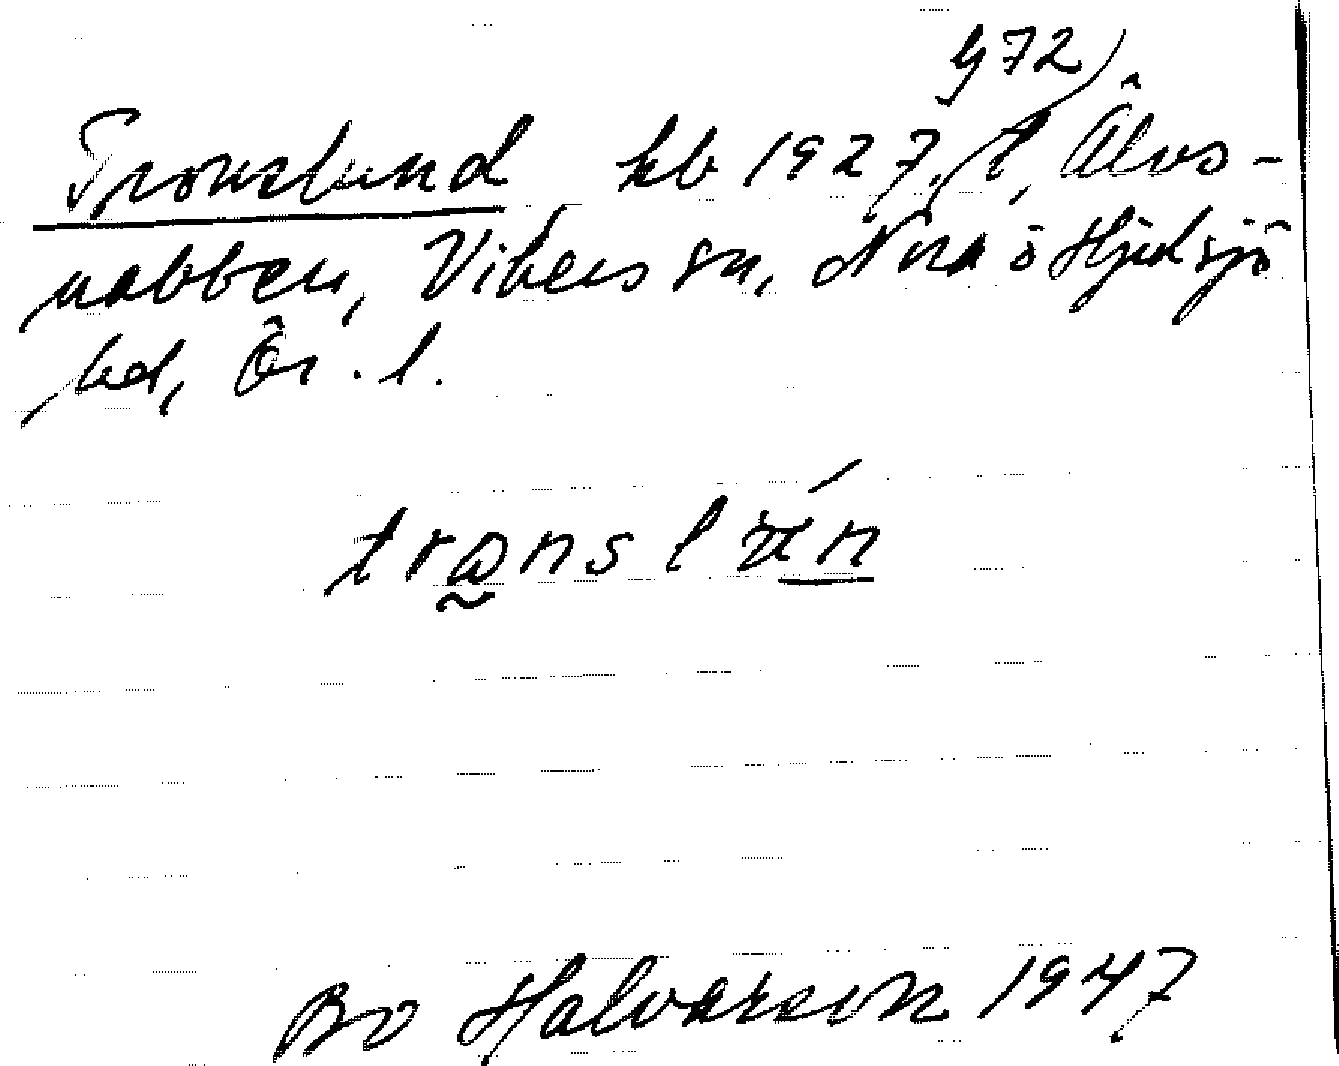 972)
Tronslund kb 1927, l, Älvs-
nabben, Vikers sn, Nora o Hjulsjö
bd, Ör. l.
transl n
Bo Halvarson 1947